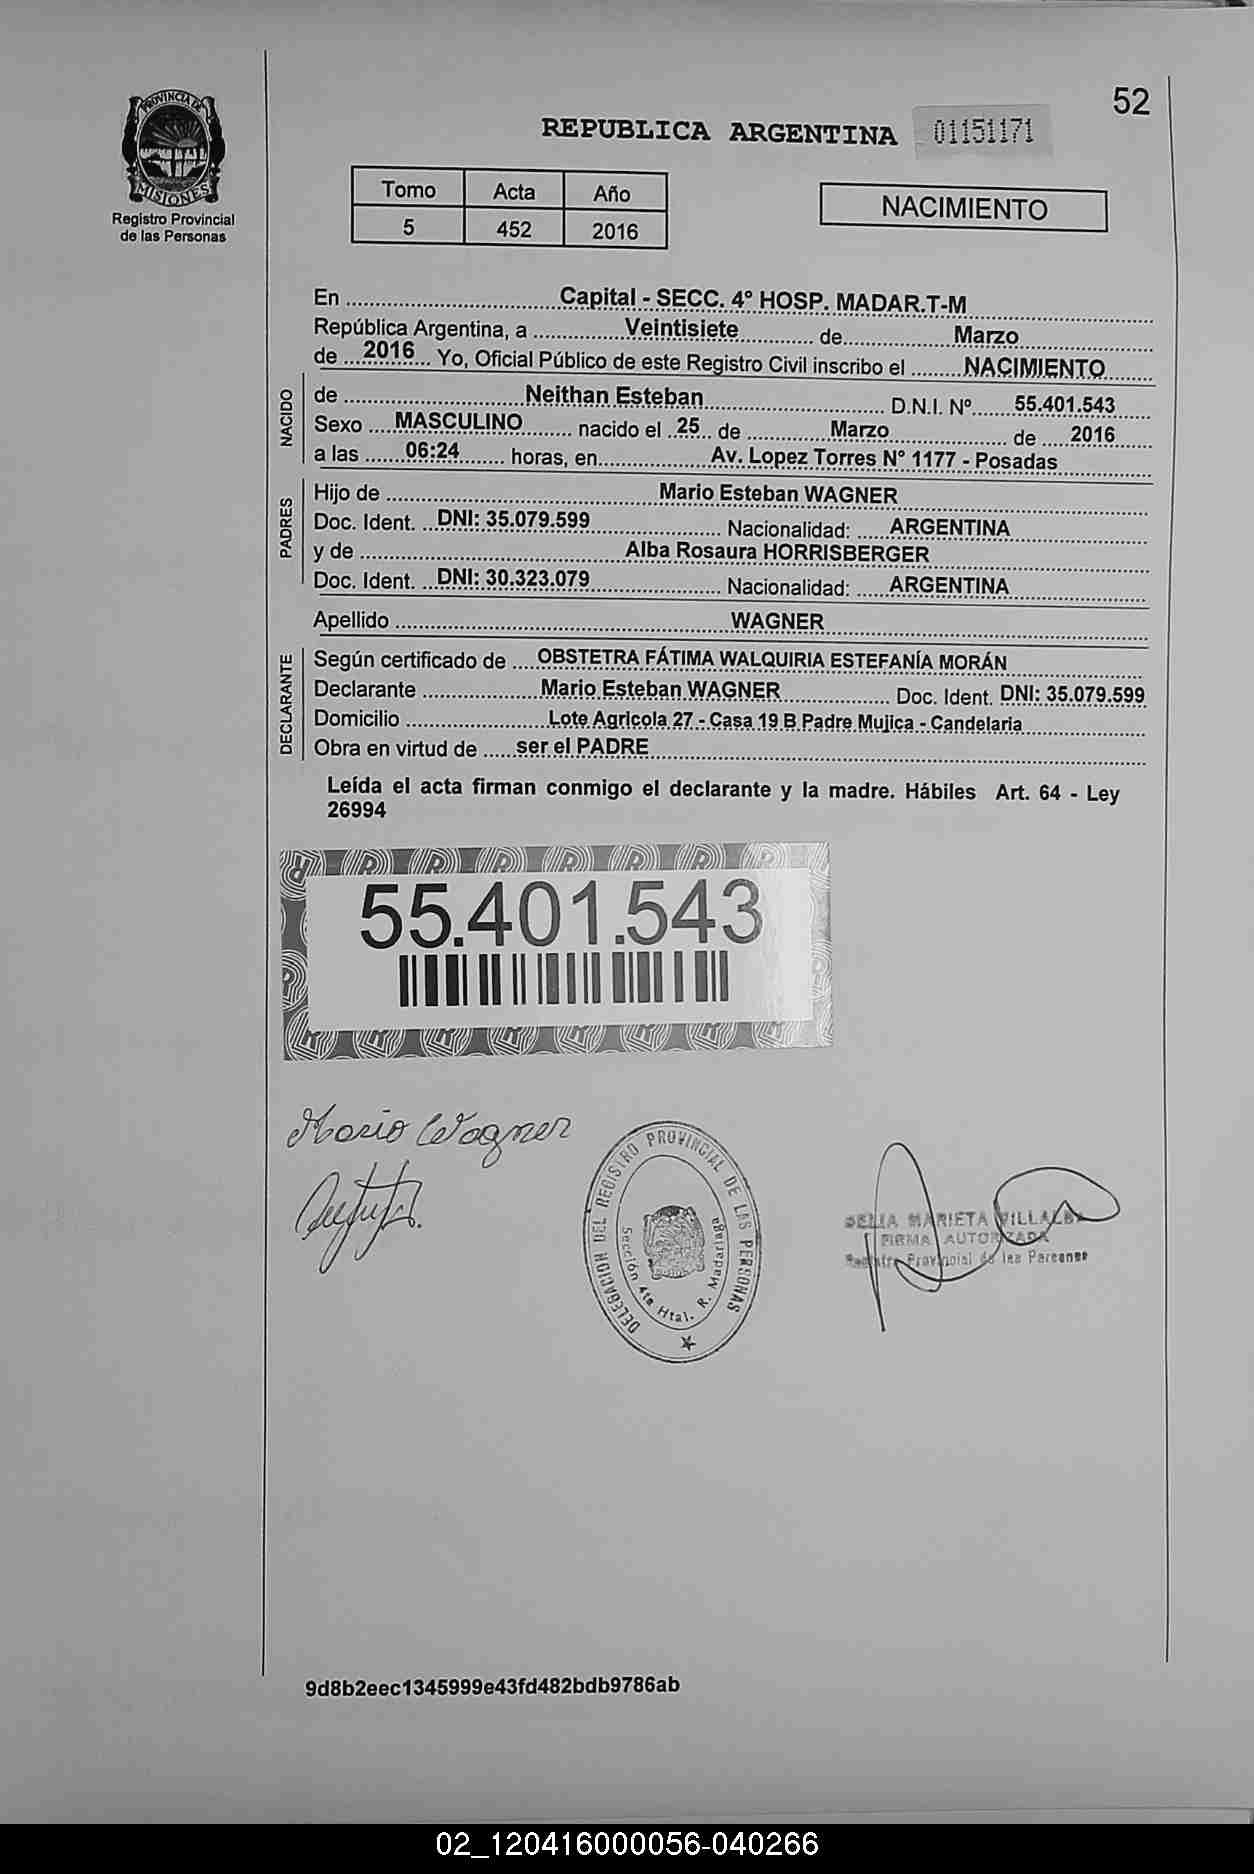 52
REPUBLICA ARGENTINA 01151171
PROVINCIA DE
MISIONES
Registro Provincial
de las Personas
Tomo Acta Año
5 452 2016
NACIMIENTO
En Capital - SECC. 4° HOSP. MADAR.T-M
República Argentina, a Veintisiete de Marzo
de 2016 Yo, Oficial Público de este Registro Civil inscribo el NACIMIENTO
NACIDO
de Neithan Esteban D.N.I. Nº 55.401.543
Sexo MASCULINO nacido el 25 de Marzo de 2016
a las 06:24 horas, en Av. Lopez Torres N° 1177 - Posadas
PADRES
Hijo de Mario Esteban WAGNER
Doc. Ident. DNI: 35.079.599 Nacionalidad: ARGENTINA
y de Alba Rosaura HORRISBERGER
Doc. Ident. DNI: 30.323.079 Nacionalidad: ARGENTINA
Apellido WAGNER
DECLARANTE
Según certificado de OBSTETRA FÁTIMA WALQUIRIA ESTEFANÍA MORÁN
Declarante Mario Esteban WAGNER Doc. Ident. DNI: 35.079.599
Domicilio Lote Agricola 27 - Casa 19 B Padre Mujica - Candelaria
Obra en virtud de ser el PADRE
Leída el acta firman conmigo el declarante y la madre. Hábiles Art. 64 - Ley
26994
55.401.543
Mario Wagner
DELEGACION DEL REGISTRO PROVINCIAL DE LAS PERSONAS
Sección 4ta Htal. R. Madariaga
MARIETA VILLALBA
FIRMA AUTORIZADA
Registro Provincial de las Personas
9d8b2eec1345999e43fd482bdb9786ab
02_120416000056-040266